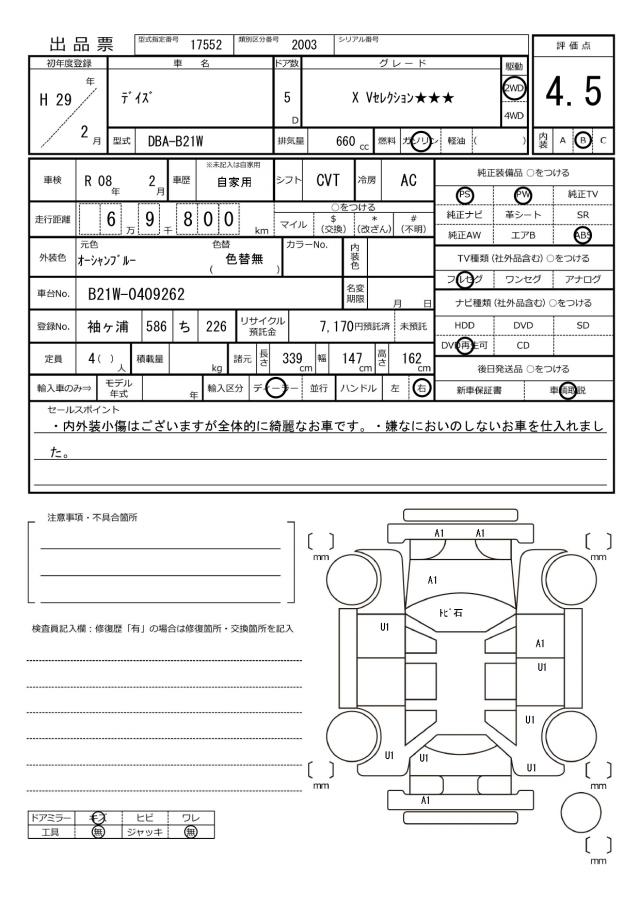 出品票 型式指定番号 17552 類別区分番号 2003 シリアル番号
評価点
4.5
内装 A B C
初年度登録 車名 ドア数 グレード 駆動
H 29 年 2 月 ﾃﾞｲｽﾞ 5 D X Vｾﾚｸｼｮﾝ★★★ 2WD 4WD
型式 DBA-B21W 排気量 660 cc 燃料 ガソリン 軽油 ( )
車検 R 08 年 2 月 車歴 ※未記入は自家用 自家用 シフト CVT 冷房 AC
走行距離 6 万 9 千 8 0 0 km
○をつける
マイル $(交換) *(改ざん) #(不明)
外装色 元色 ｵｰｼｬﾝﾌﾞﾙｰ 色替 ( 色替無 ) カラーNo. 内装色
車台No. B21W-0409262 名変期限 月 日
登録No. 袖ヶ浦 586 ち 226 リサイクル預託金 7,170円預託済 未預託
定員 4( ) 人 積載量 kg 諸元 長さ 339 cm 幅 147 cm 高さ 162 cm
輸入車のみ⇒ モデル年式 年 輸入区分 ディーラー 並行 ハンドル 左 右
純正装備品 ○をつける
PS PW 純正TV
純正ナビ 革シート SR
純正AW エアB ABS
TV種類 (社外品含む) ○をつける
フルセグ ワンセグ アナログ
ナビ種類 (社外品含む) ○をつける
HDD DVD SD
DVD再生可 CD
後日発送品 ○をつける
新車保証書 車輌取説
セールスポイント
・内外装小傷はございますが全体的に綺麗なお車です。・嫌なにおいのしないお車を仕入れまし
た。
注意事項・不具合箇所
検査員記入欄：修復歴「有」の場合は修復箇所・交換箇所を記入
ドアミラー キズ ヒビ ワレ
工具 無 ジャッキ 無
A1 A1
mm mm
A1
ﾄﾋﾞ石
U1
A1
U1
U1
U1 U1
U1
mm mm
A1
mm